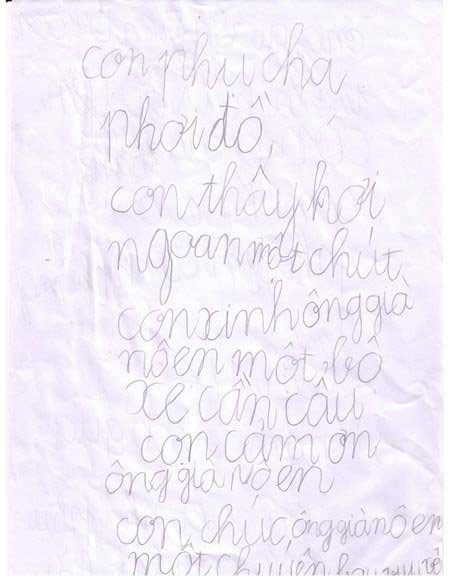 con phụ cha
phơi đồ,
con thấy hơi
ngoan một chút
con xinh ông già
nôen một bộ
xe cần cẩu
con cảm ơn
ông già nôen
con chúc ông già nô en
một chuyến bay vui vẻ